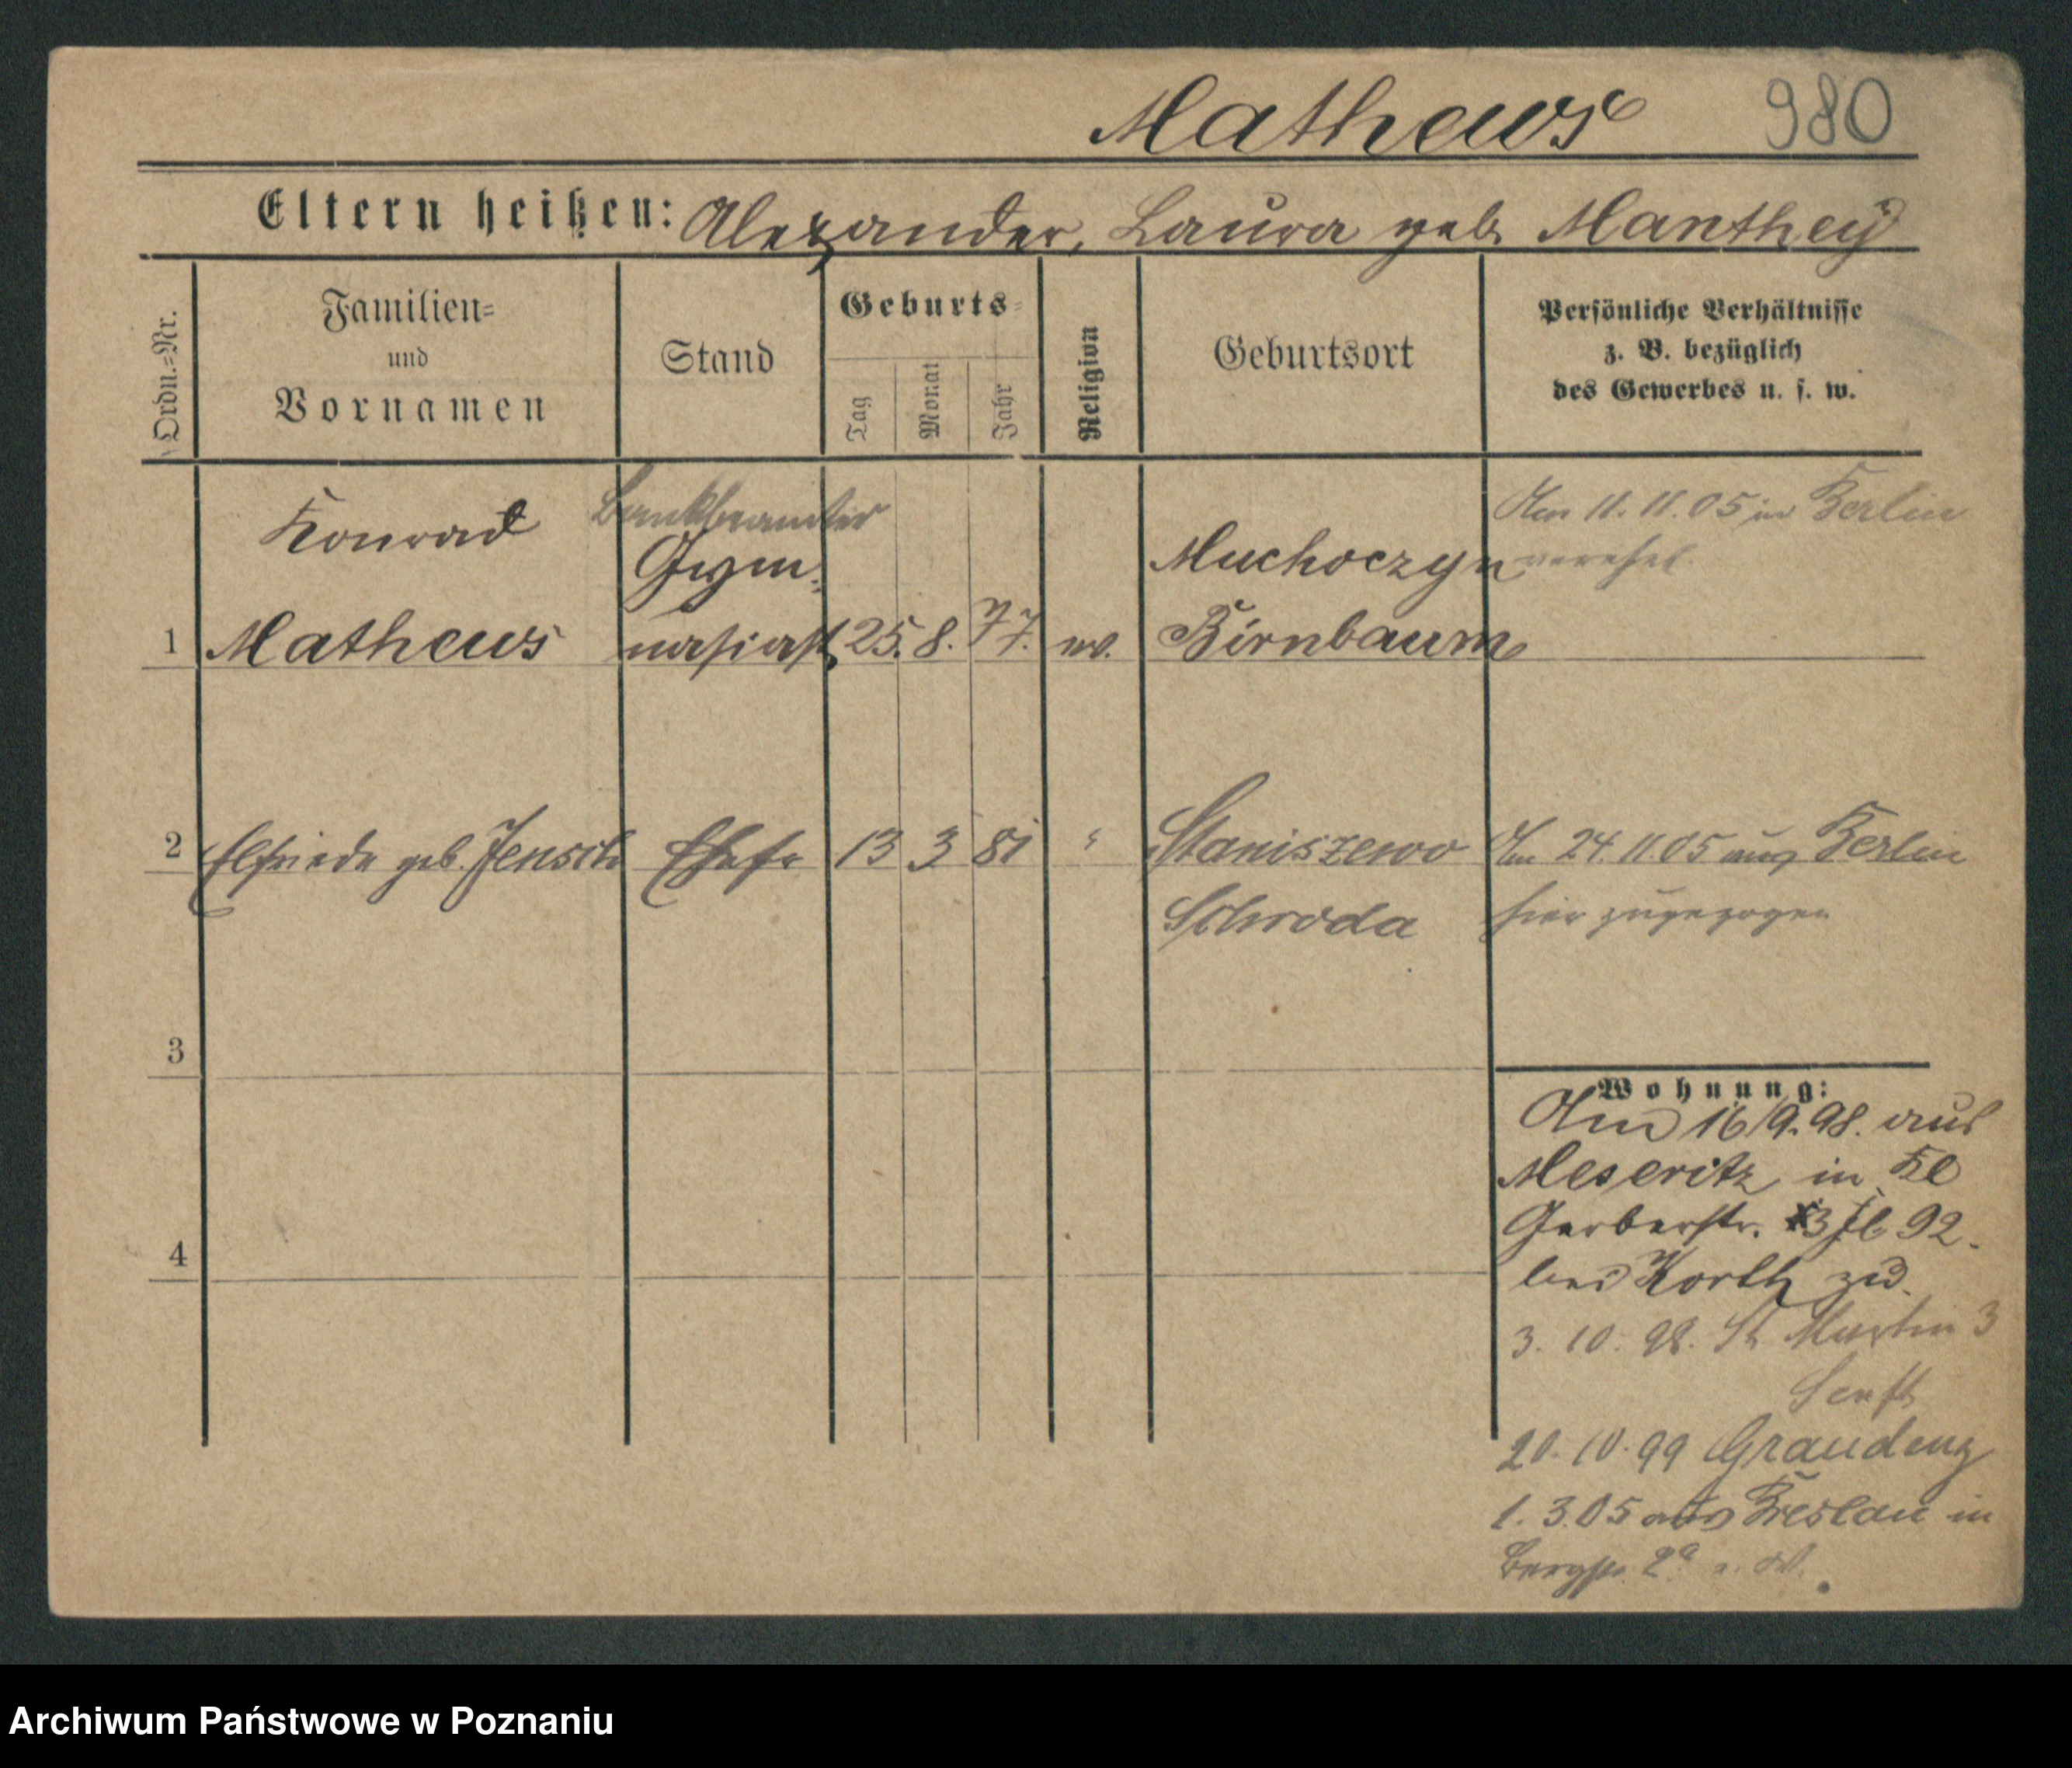 Matheus 980
Eltern heißen: Alexander, Laura geb. Manthey
Ordn.=Nr.
Familien=
und
Vornamen
Stand
Geburts=
Tag
Monat
Jahr
Religion
Geburtsort
Persönliche Verhältnisse
z. B. bezüglich
des Gewerbes u. s. w.
Konrad
1 Matheus
Bankbeamter
Gym-
nasiast
25. 8. 77. ev.
Muchoczyn
Birnbaum
Am 11.11.05 in Berlin
verehel.
2 Elfriede geb. Jensch Ehefr 13 3 81 "
Staniszewo
Schroda
Am 24.11.05 aus Berlin
hier zugezogen
3
4
Wohnung:
Am 16/9.98. aus
Meseritz in Kl
Gerberstr. 3 92.
bei Korth zu.
3. 10. 98. St. Martin 3
Senft
20. 10. 99 Graudenz
1. 3.05 aus Breslau in
Bergstr. 2a
Archiwum Państwowe w Poznaniu